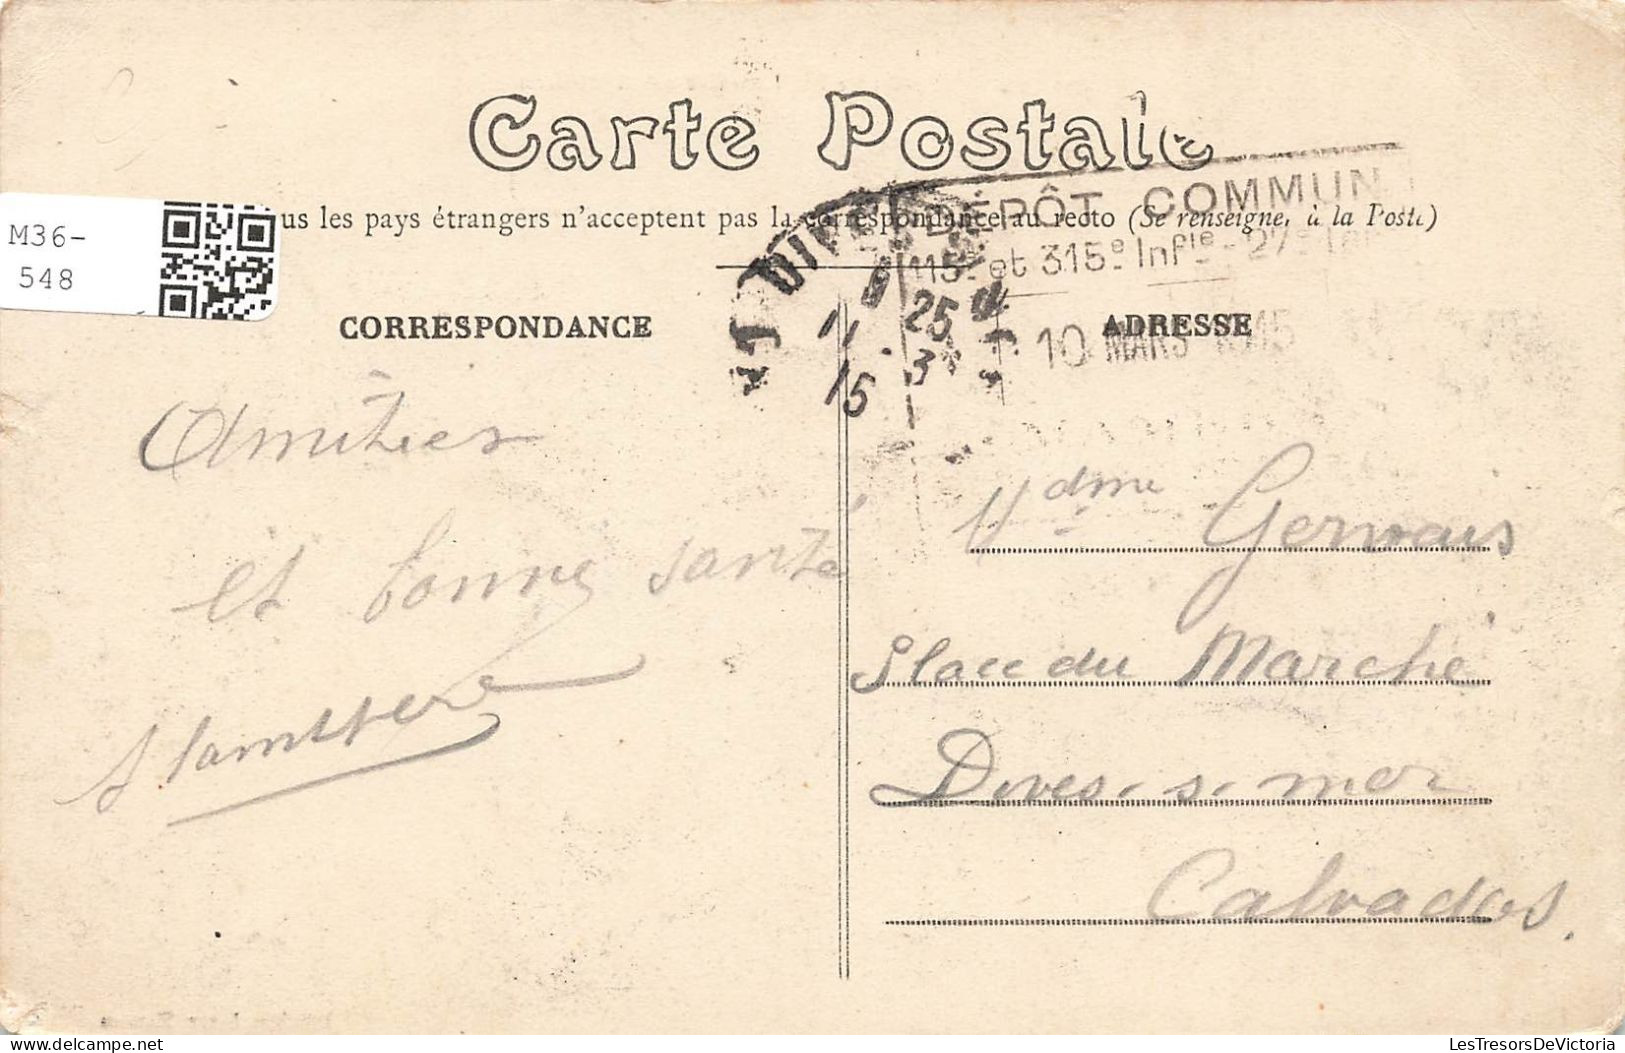 Carte Postale
M36-
548
us les pays étrangers n'acceptent pas la correspondance au recto (Se renseigner à la Poste)
DÉPÔT COMMUN
115e et 315e Infie - 27e
CORRESPONDANCE
ADRESSE
11 25
15 3
10 MARS 1915
Amitiés
et bonne santé
Mdme Gervais
Place du Marché
Dives-s-mer
Calvados.
delcampe.net
LesTresorsDeVictoria